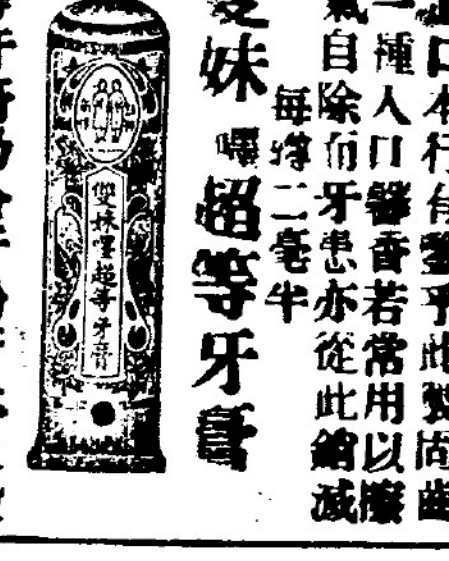 口本行有鑒乎此製固齒
一種人口馨香若常用以擦
氣自除而牙患亦從此銷滅
每樽二毫半
雙妹嚜超等牙膏
雙妹嚜超等牙膏